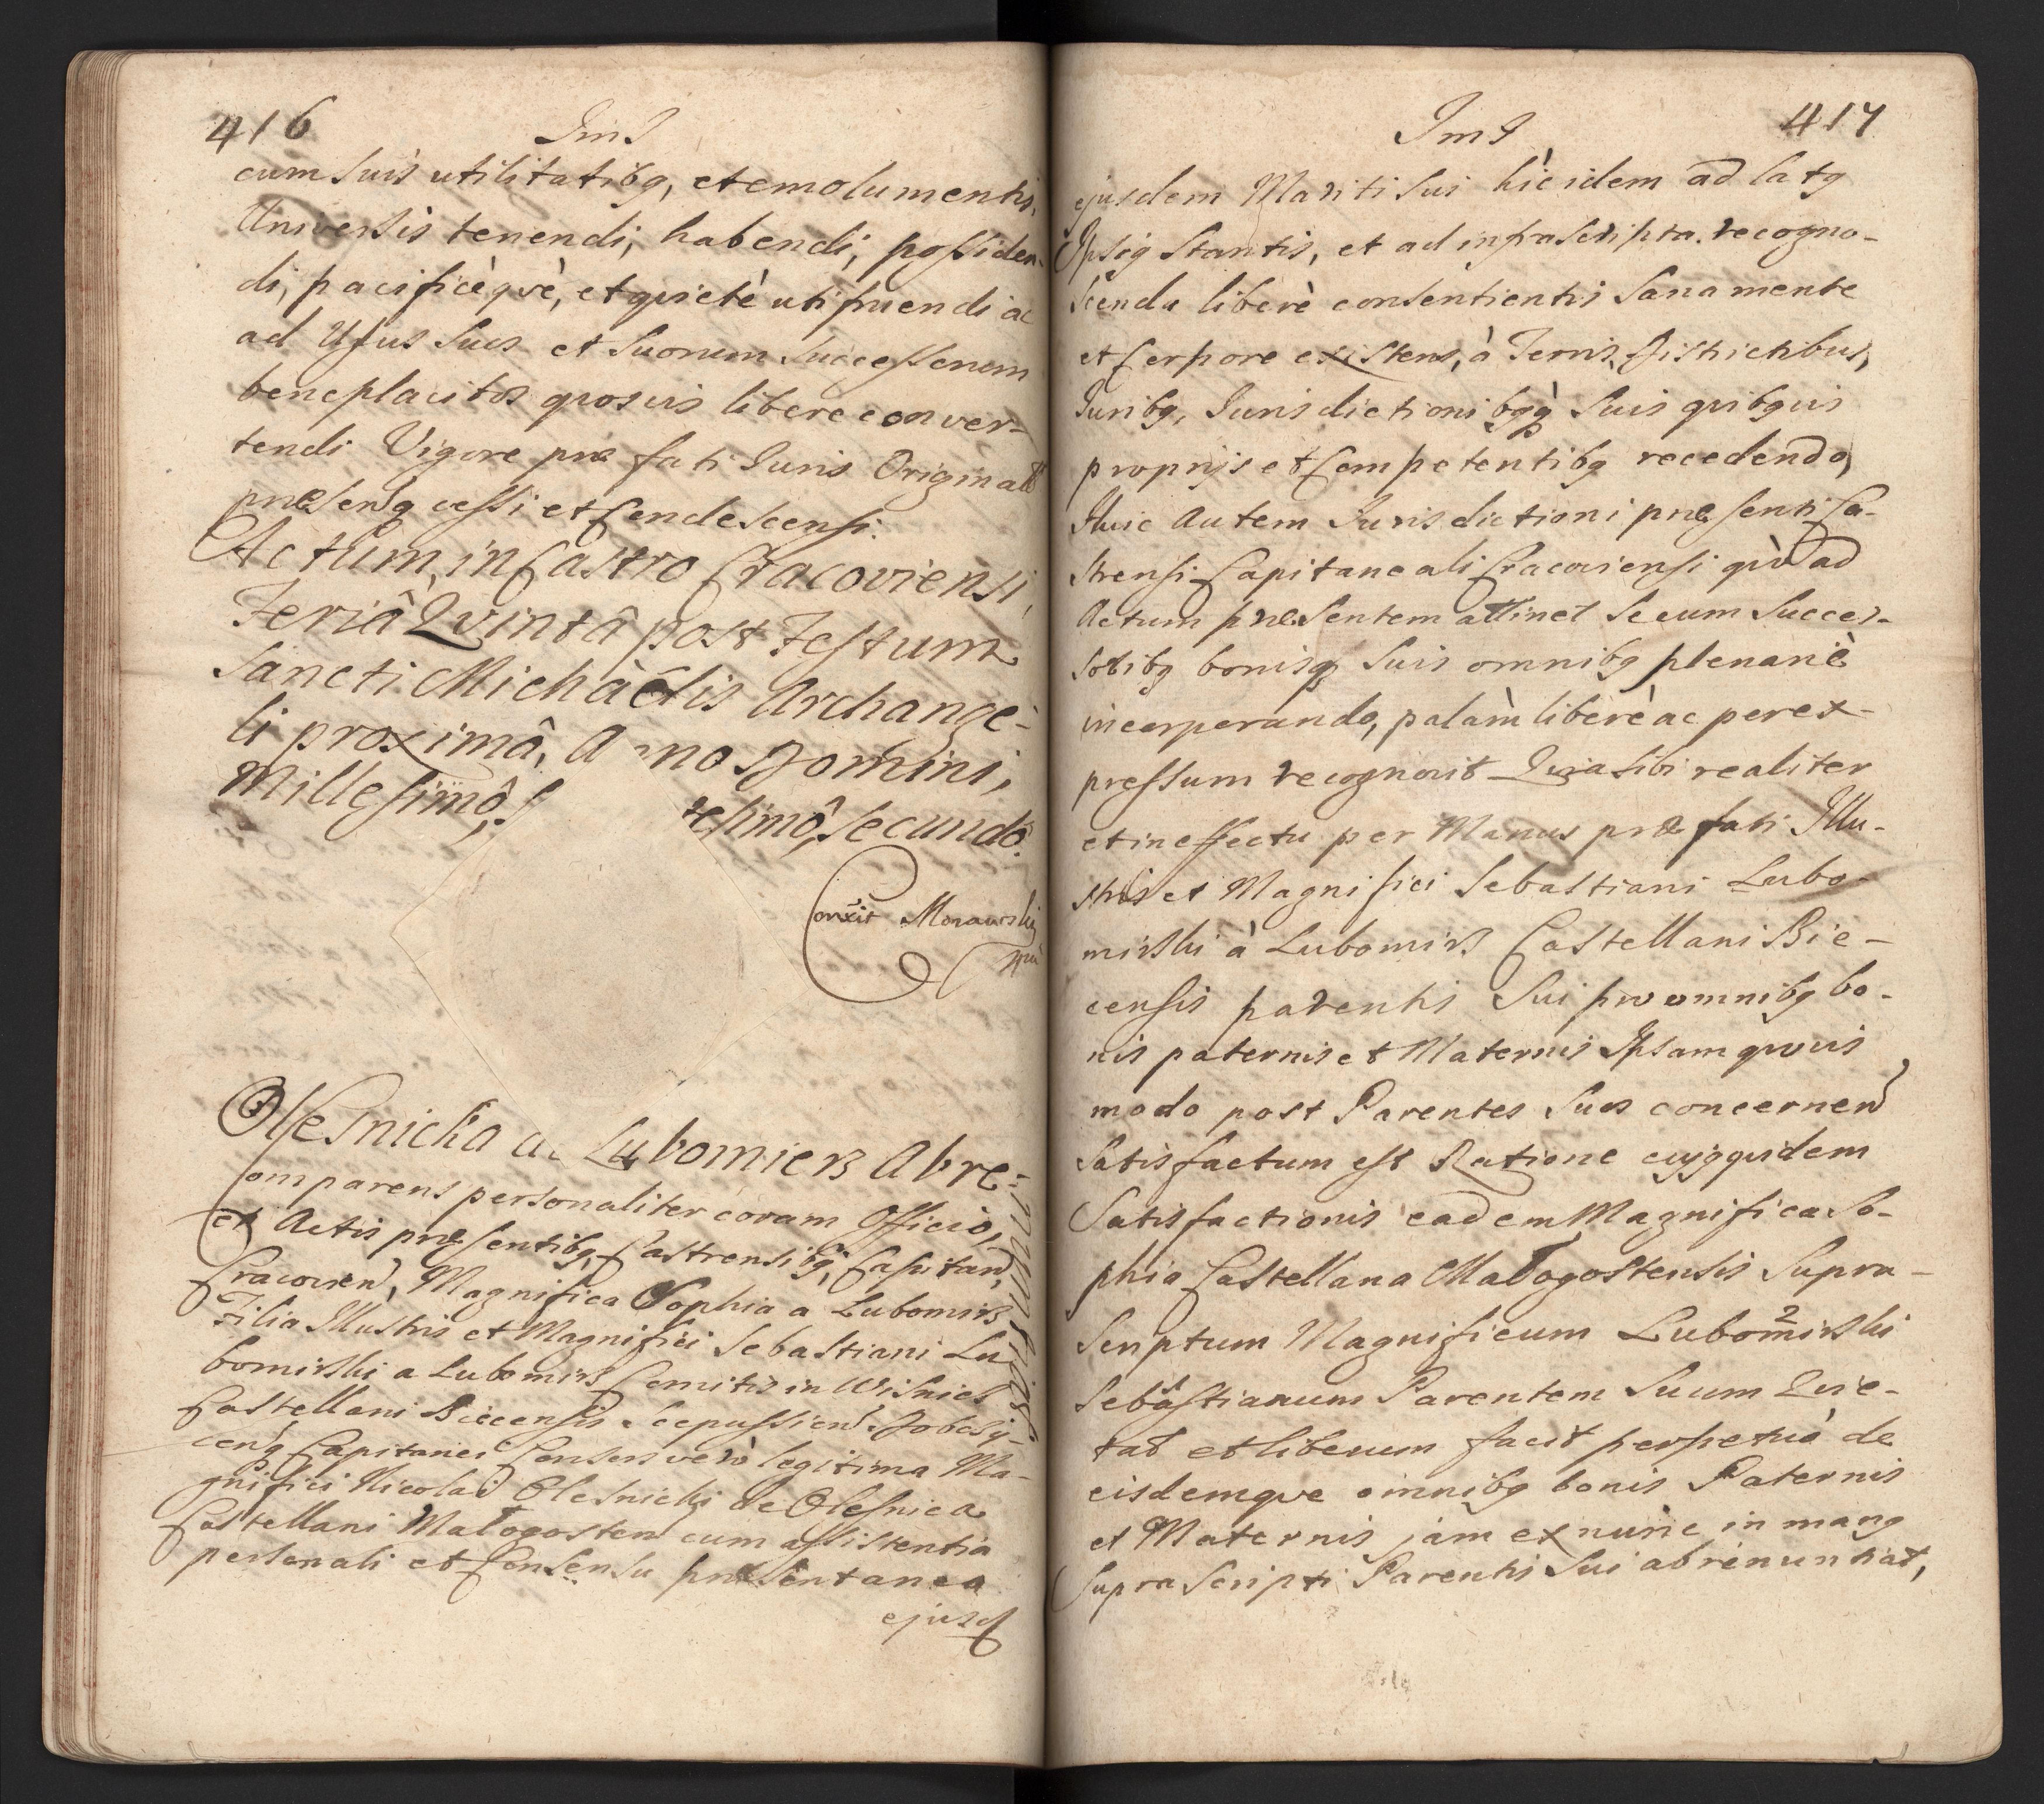 416
ImJ
cum suis utilitatibq, et emolumentis,
Universis tenendi, habendi, possiden-
di, pacificèqvè, et qvietè uti fruendi ac
ad Usus suos et suorum successorum
beneplacitos qvosvis libere conver-
tendi Vigore præ fati Iuris Originalis
præsensq cessi et Condescensi.
Actum, in Castro Cracoviensi,
Feriâ Qvintâ post Festum
Sancti Michàélis Archange-
li proximâ, Anno Domini,
Millesimô, S
resimô, secundô.
Conxit Morawski
mpia
Olesnicka a Lubomierz Abre-
nuntiat
Comparens personaliter coram Officio,
et Actis præsentibq, Castrensibq, Capitan,
Cracovien, Magnifica Sophia a Lubomirz
Filia Illustris et Magnifici Sebastiani Lu
bomirski a Lubomirz Comitis in Wisnicz
Castellani Biecensis Scepussien Dobczy-
cenq Capitanei Consors verò legitima Ma-
gnifici Nicolai Olesnicki de Olesnica
Castellani Małogosten cum assistentia
personali et Consensu præsentaneo
ejusd
ImJ
417
ejusdem Mariti sui hìc idem ad latq
Ipsiq stantis, et ad infrascripta recogno-
scenda liberè consentientis sana mente
et Corpore existens, à Terris, Districtibus,
Iuribq, Iurisdictionibqq suis qvibqvis
proprijs et Competentibq recedendo,
Huic autem Jurisdictioni præsenti Ca-
strensi Capitaneali Cracoviensi qvò ad
Actum præsentem attinet se cum succes-
soribq bonisq suis omnibq plenariè
incorporando, palàm liberè ac per ex-
pressum recognovit Qvia sibi realiter
et in effectu per Manus præ fati Illu-
stris et Magnifici Sebastiani Lubo-
mirski à Lubomirz Castellani Bie-
censis parentis sui pro omnibq bo-
nis paternis et Maternis Ipsam qvovis
modo post Parentes suos concernen
Satisfactum est Ratione cujqqvidem
Satisfactionis eadem Magnifica So-
phia Castellana Małogostensis supra-
scriptum Magnificum Lubomirski 2
Sebastianum Parentem suum Qvie-
tat et liberum facit perpetuò de
eisdemqve omnibq bonis Paternis
et Maternis jàm ex nunc in manq
supra scripti Parentis sui abrenuntiat,